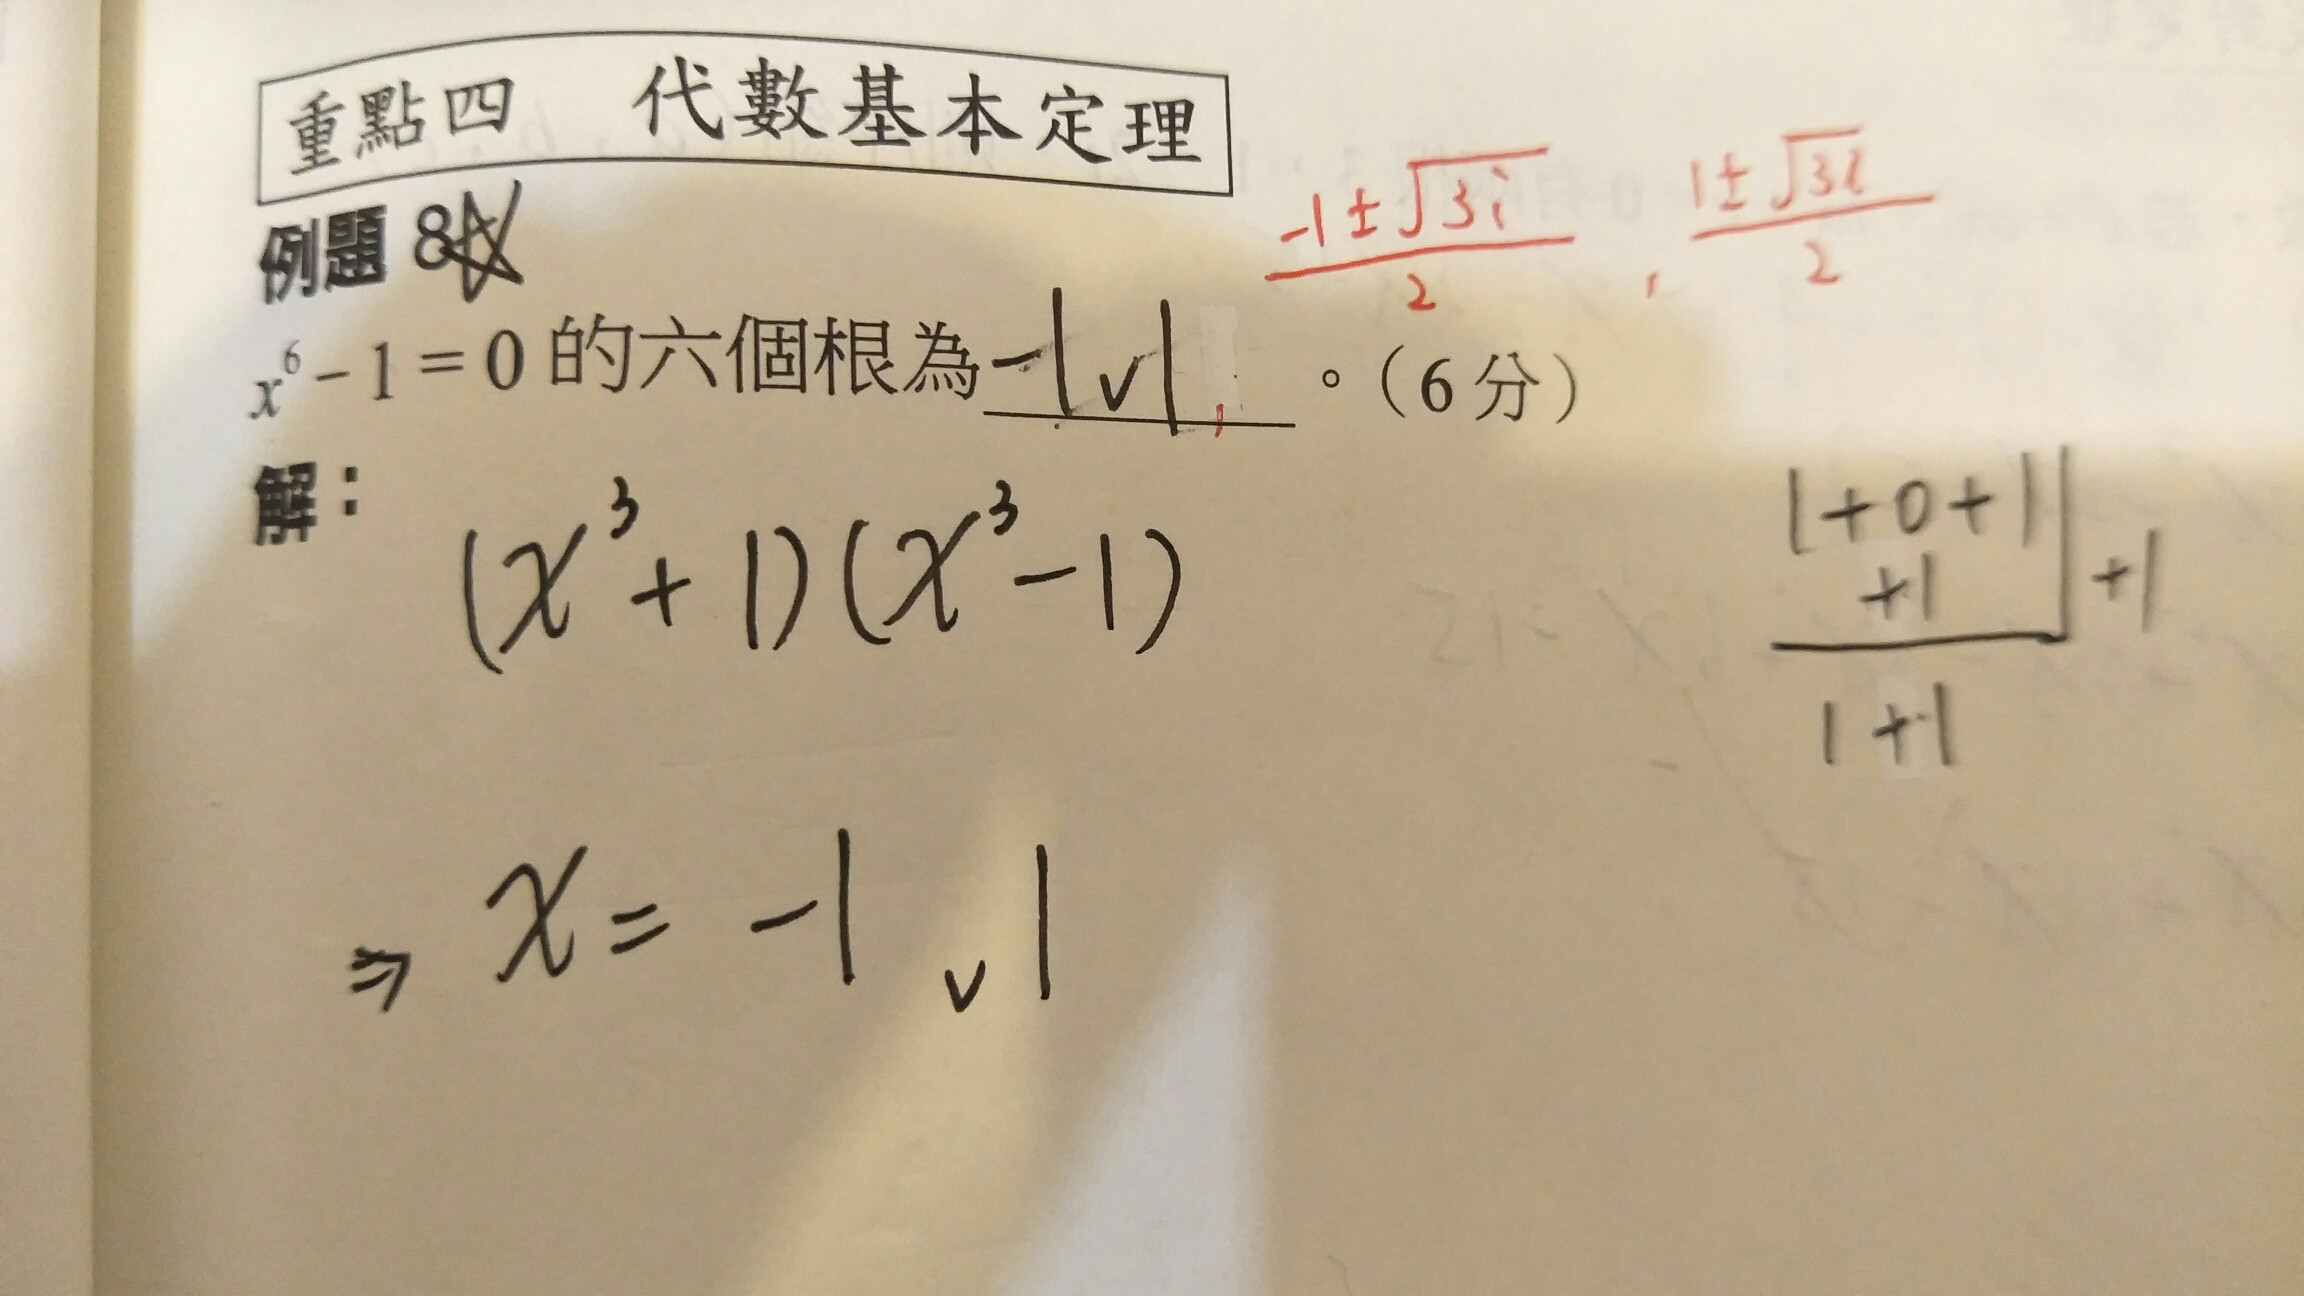 重點四 代數基本定理
例題 8☆
-1±√3i/2 , 1±√3i/2
x⁶-1=0 的六個根為 -1∨1, 。(6分)
解：
(x³+1)(x³-1)
1+0+1 | +1
+1
1+1
⇒ x = -1 ∨ 1